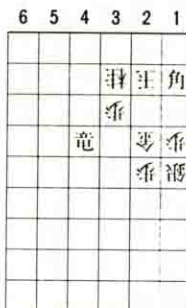 6 5 4 3 2 1
桂 玉 角
歩
竜 金 歩
歩 銀